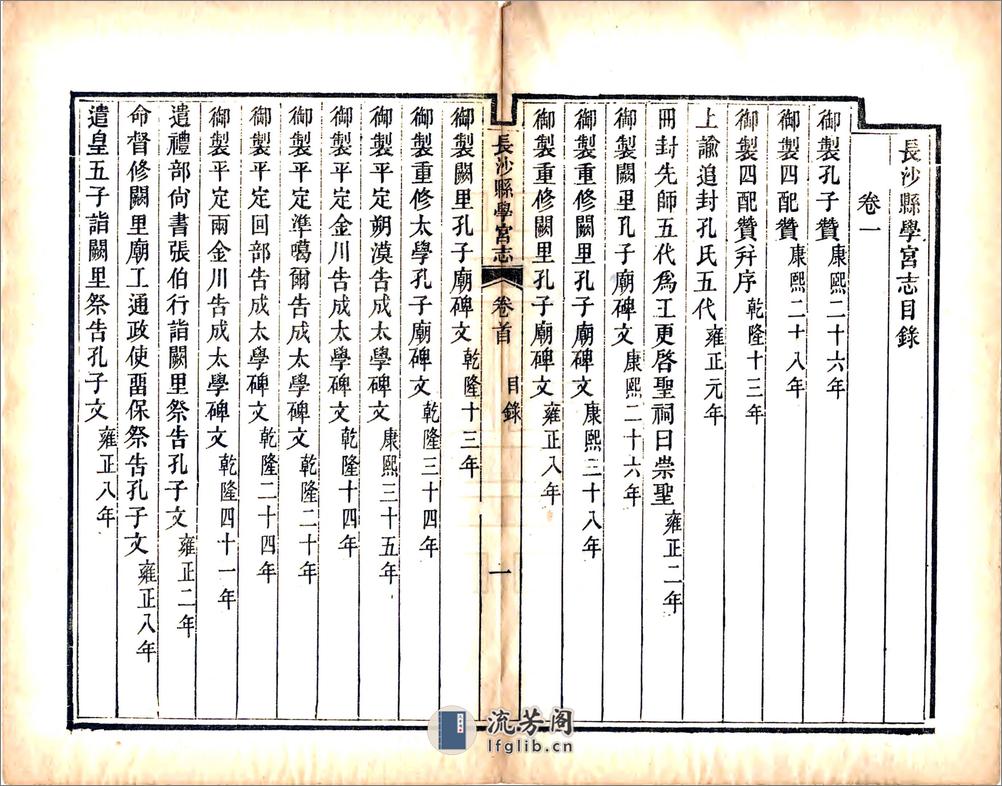 長沙縣學宮志目錄
卷一
御製孔子贊 康熙二十六年
御製四配贊 康熙二十八年
御製四配贊幷序 乾隆十三年
上諭追封孔氏五代 雍正元年
冊封先師五代爲王更啓聖祠曰崇聖 雍正二年
御製闕里孔子廟碑文 康熙二十六年
御製重修闕里孔子廟碑文 康熙三十八年
御製重修闕里孔子廟碑文 雍正八年
長沙縣學宮志 卷首 目錄 一
御製闕里孔子廟碑文 乾隆十三年
御製重修太學孔子廟碑文 乾隆三十四年
御製平定朔漠告成太學碑文 康熙三十五年
御製平定金川告成太學碑文 乾隆十四年
御製平定準噶爾告成太學碑文 乾隆二十年
御製平定回部告成太學碑文 乾隆二十四年
御製平定兩金川告成太學碑文 乾隆四十一年
遣禮部尙書張伯行詣闕里祭告孔子文 雍正二年
命督修闕里廟工通政使畱保祭告孔子文 雍正八年
遣皇五子詣闕里祭告孔子文 雍正八年
流芳阁
lfglib.cn